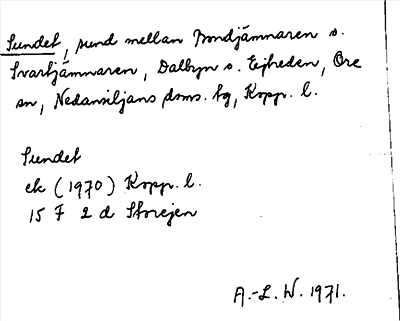 Sundet, sund mellan Brondjämnaren o.
Svartjämnaren, Dalbyn o. Ejheden, Ore
sn, Nedansiljans doms. tg, Kopp. l.
Sundet
ek (1970) Kopp. l.
15 F 2 d Storejen
A.-L. W. 1971.